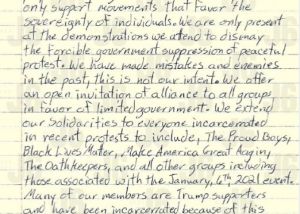 only support movements that favor the
sovereignty of individuals. We are only present
at the demonstrations we attend to dismay
the forcible government suppression of peaceful
protest. We have made mistakes and enemies
in the past, this is not our intent. We offer
an open invitation of alliance to all groups
in favor of limited government. We extend
our Solidarities to everyone incarcerated
in recent protests to include, The Proud Boys,
Black Lives Matter, Make America Great Again,
The Oathkeepers, and all other groups including
those associated with the January, 6th, 2021 event.
Many of our members are Trump supporters
and have been incarcerated because of this